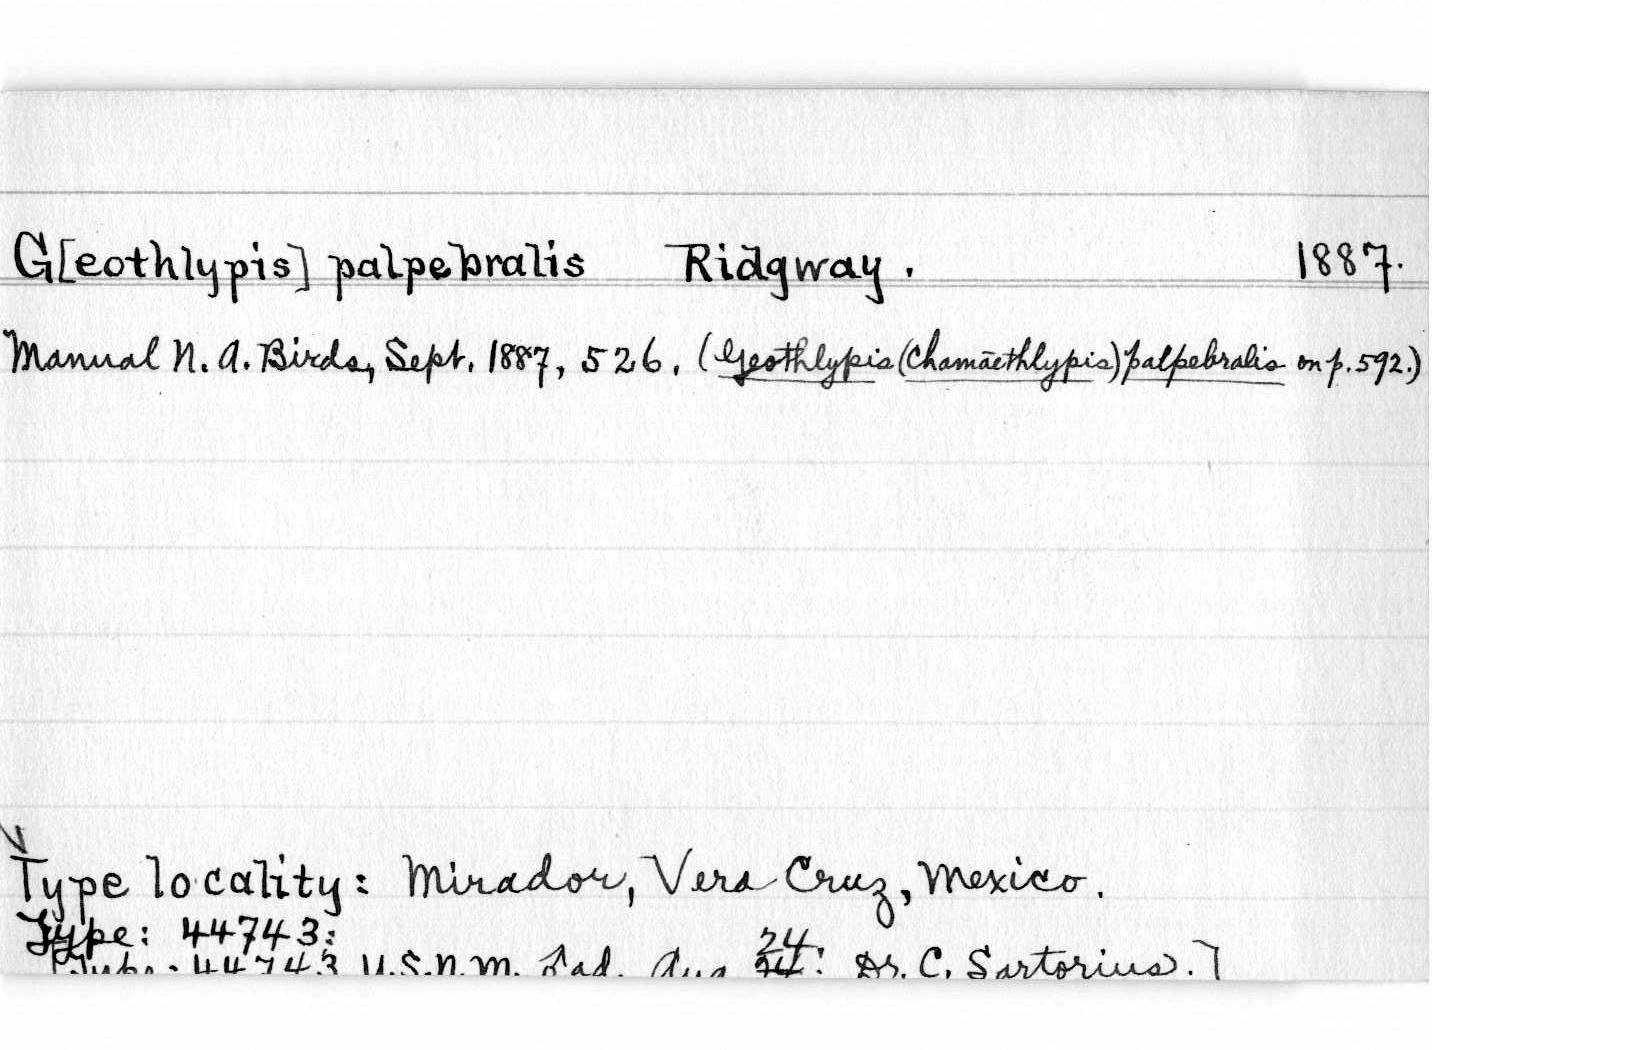 G[eothlypis] palpebralis Ridgway. 1887.
Manual N. A. Birds, Sept. 1887, 526. (Geothlypis (Chamæthlypis) palpebralis on p. 592.)
Type locality: Mirador, Vera Cruz, Mexico.
Type: 44743:
[Type: 44743 U.S.N.M. ad. Aug 24: Dr. C. Sartorius.]